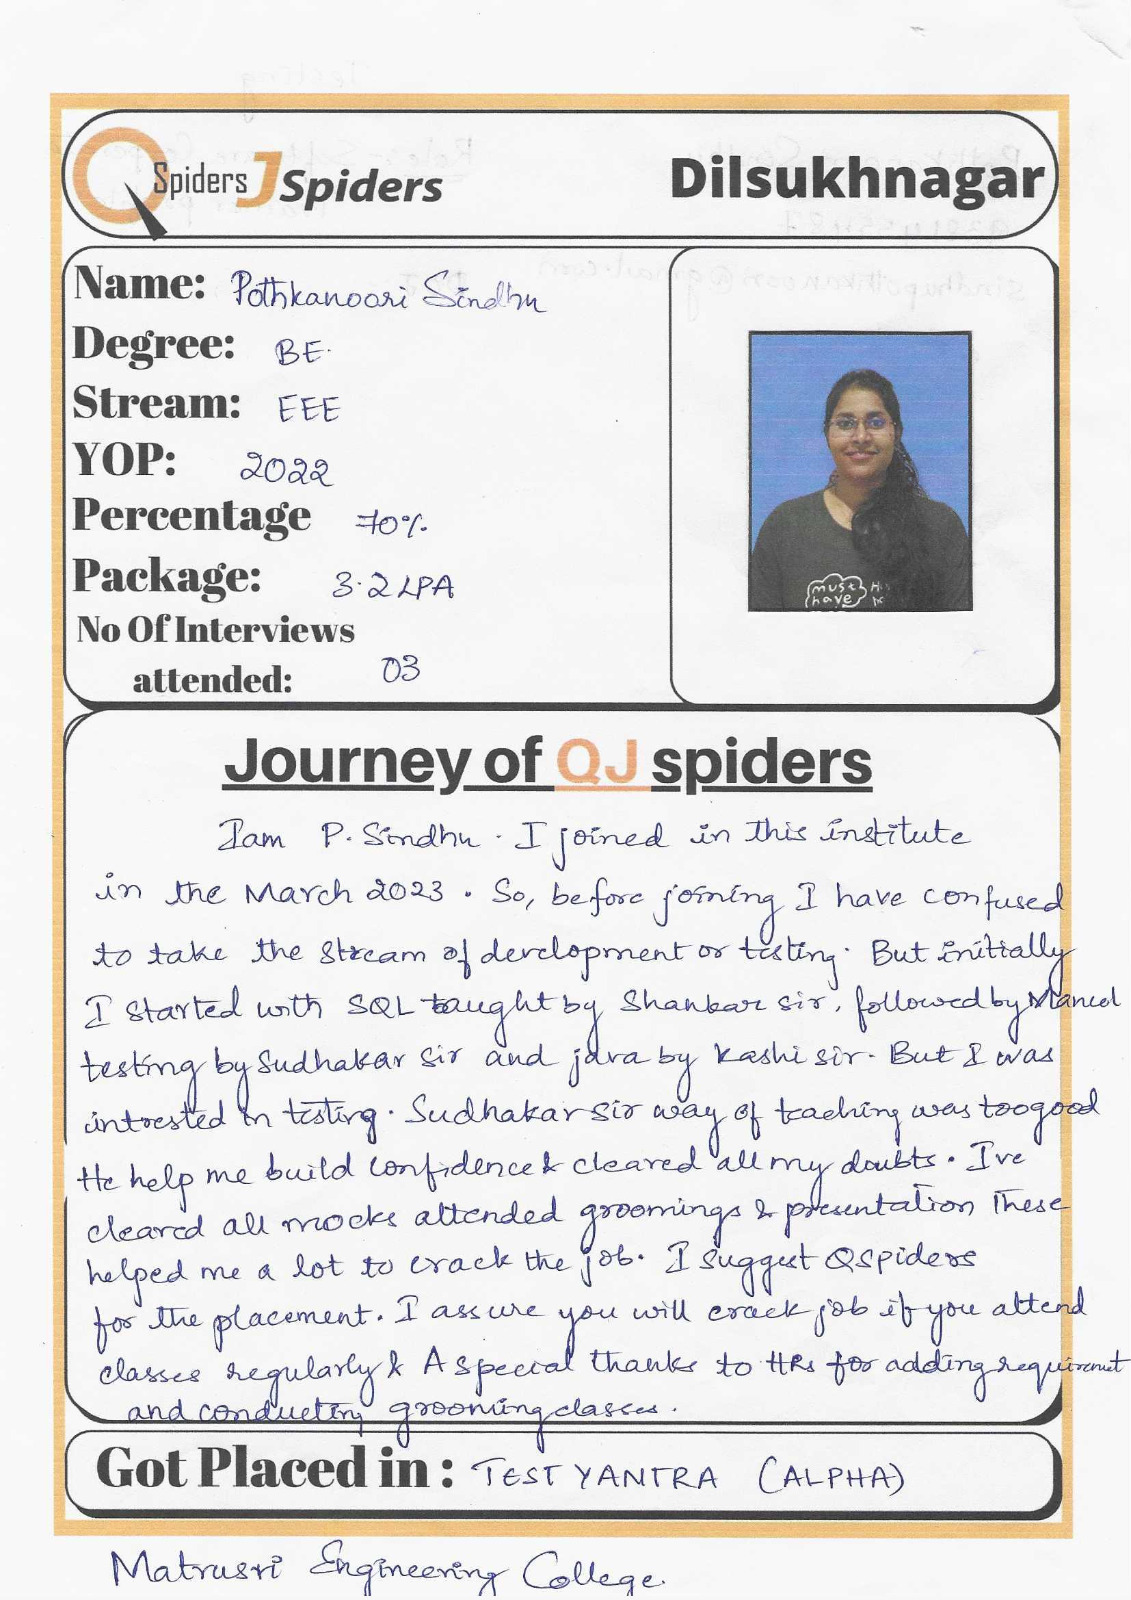 Spiders J Spiders
Dilsukhnagar
Name: Pothkanoori Sindhu
Degree: BE.
Stream: EEE
YOP: 2022
Percentage 70%
Package: 3.2 LPA
No Of Interviews
attended: 03
must
have
Journey of QJ spiders
Iam P. Sindhu. I joined in this institute
in the March 2023. So, before joining I have confused
to take the stream of development or testing. But initially
I started with SQL taught by Shankar sir, followed by Manual
testing by Sudhakar sir and java by Kashi sir. But I was
intrested in testing. Sudhakar sir way of teaching was too good
He help me build confidence & cleared all my doubts. I've
cleared all mocks attended groomings & presentation These
helped me a lot to crack the job. I suggest QSpiders
for the placement. I assure you will crack job if you attend
classes regularly & A special thanks to HRs for adding requirement
and conducting grooming classes.
Got Placed in : TEST YANTRA (ALPHA)
Matrusri Engineering College.